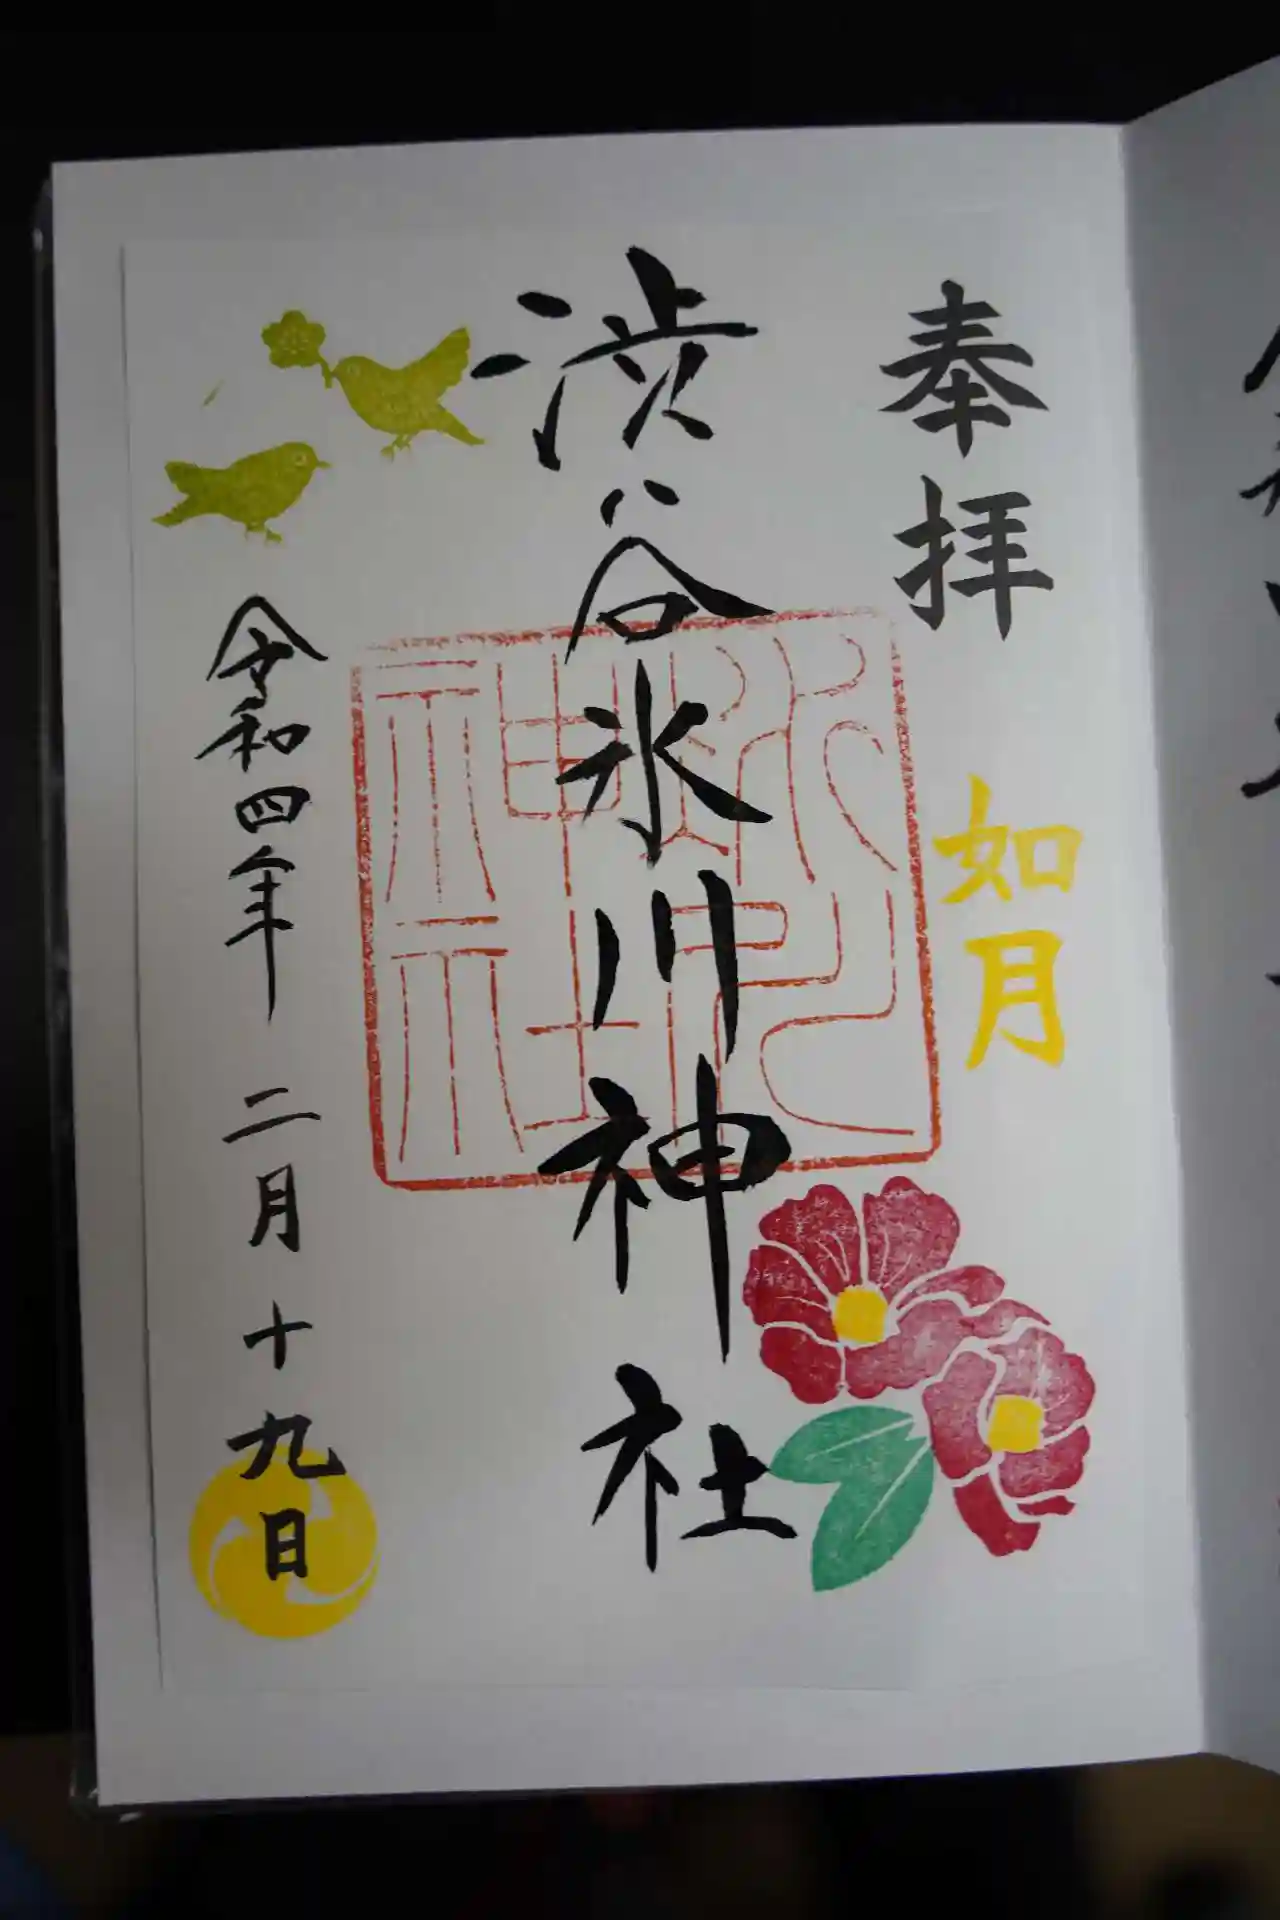 奉拝
如月
渋谷氷川神社
令和四年二月十九日